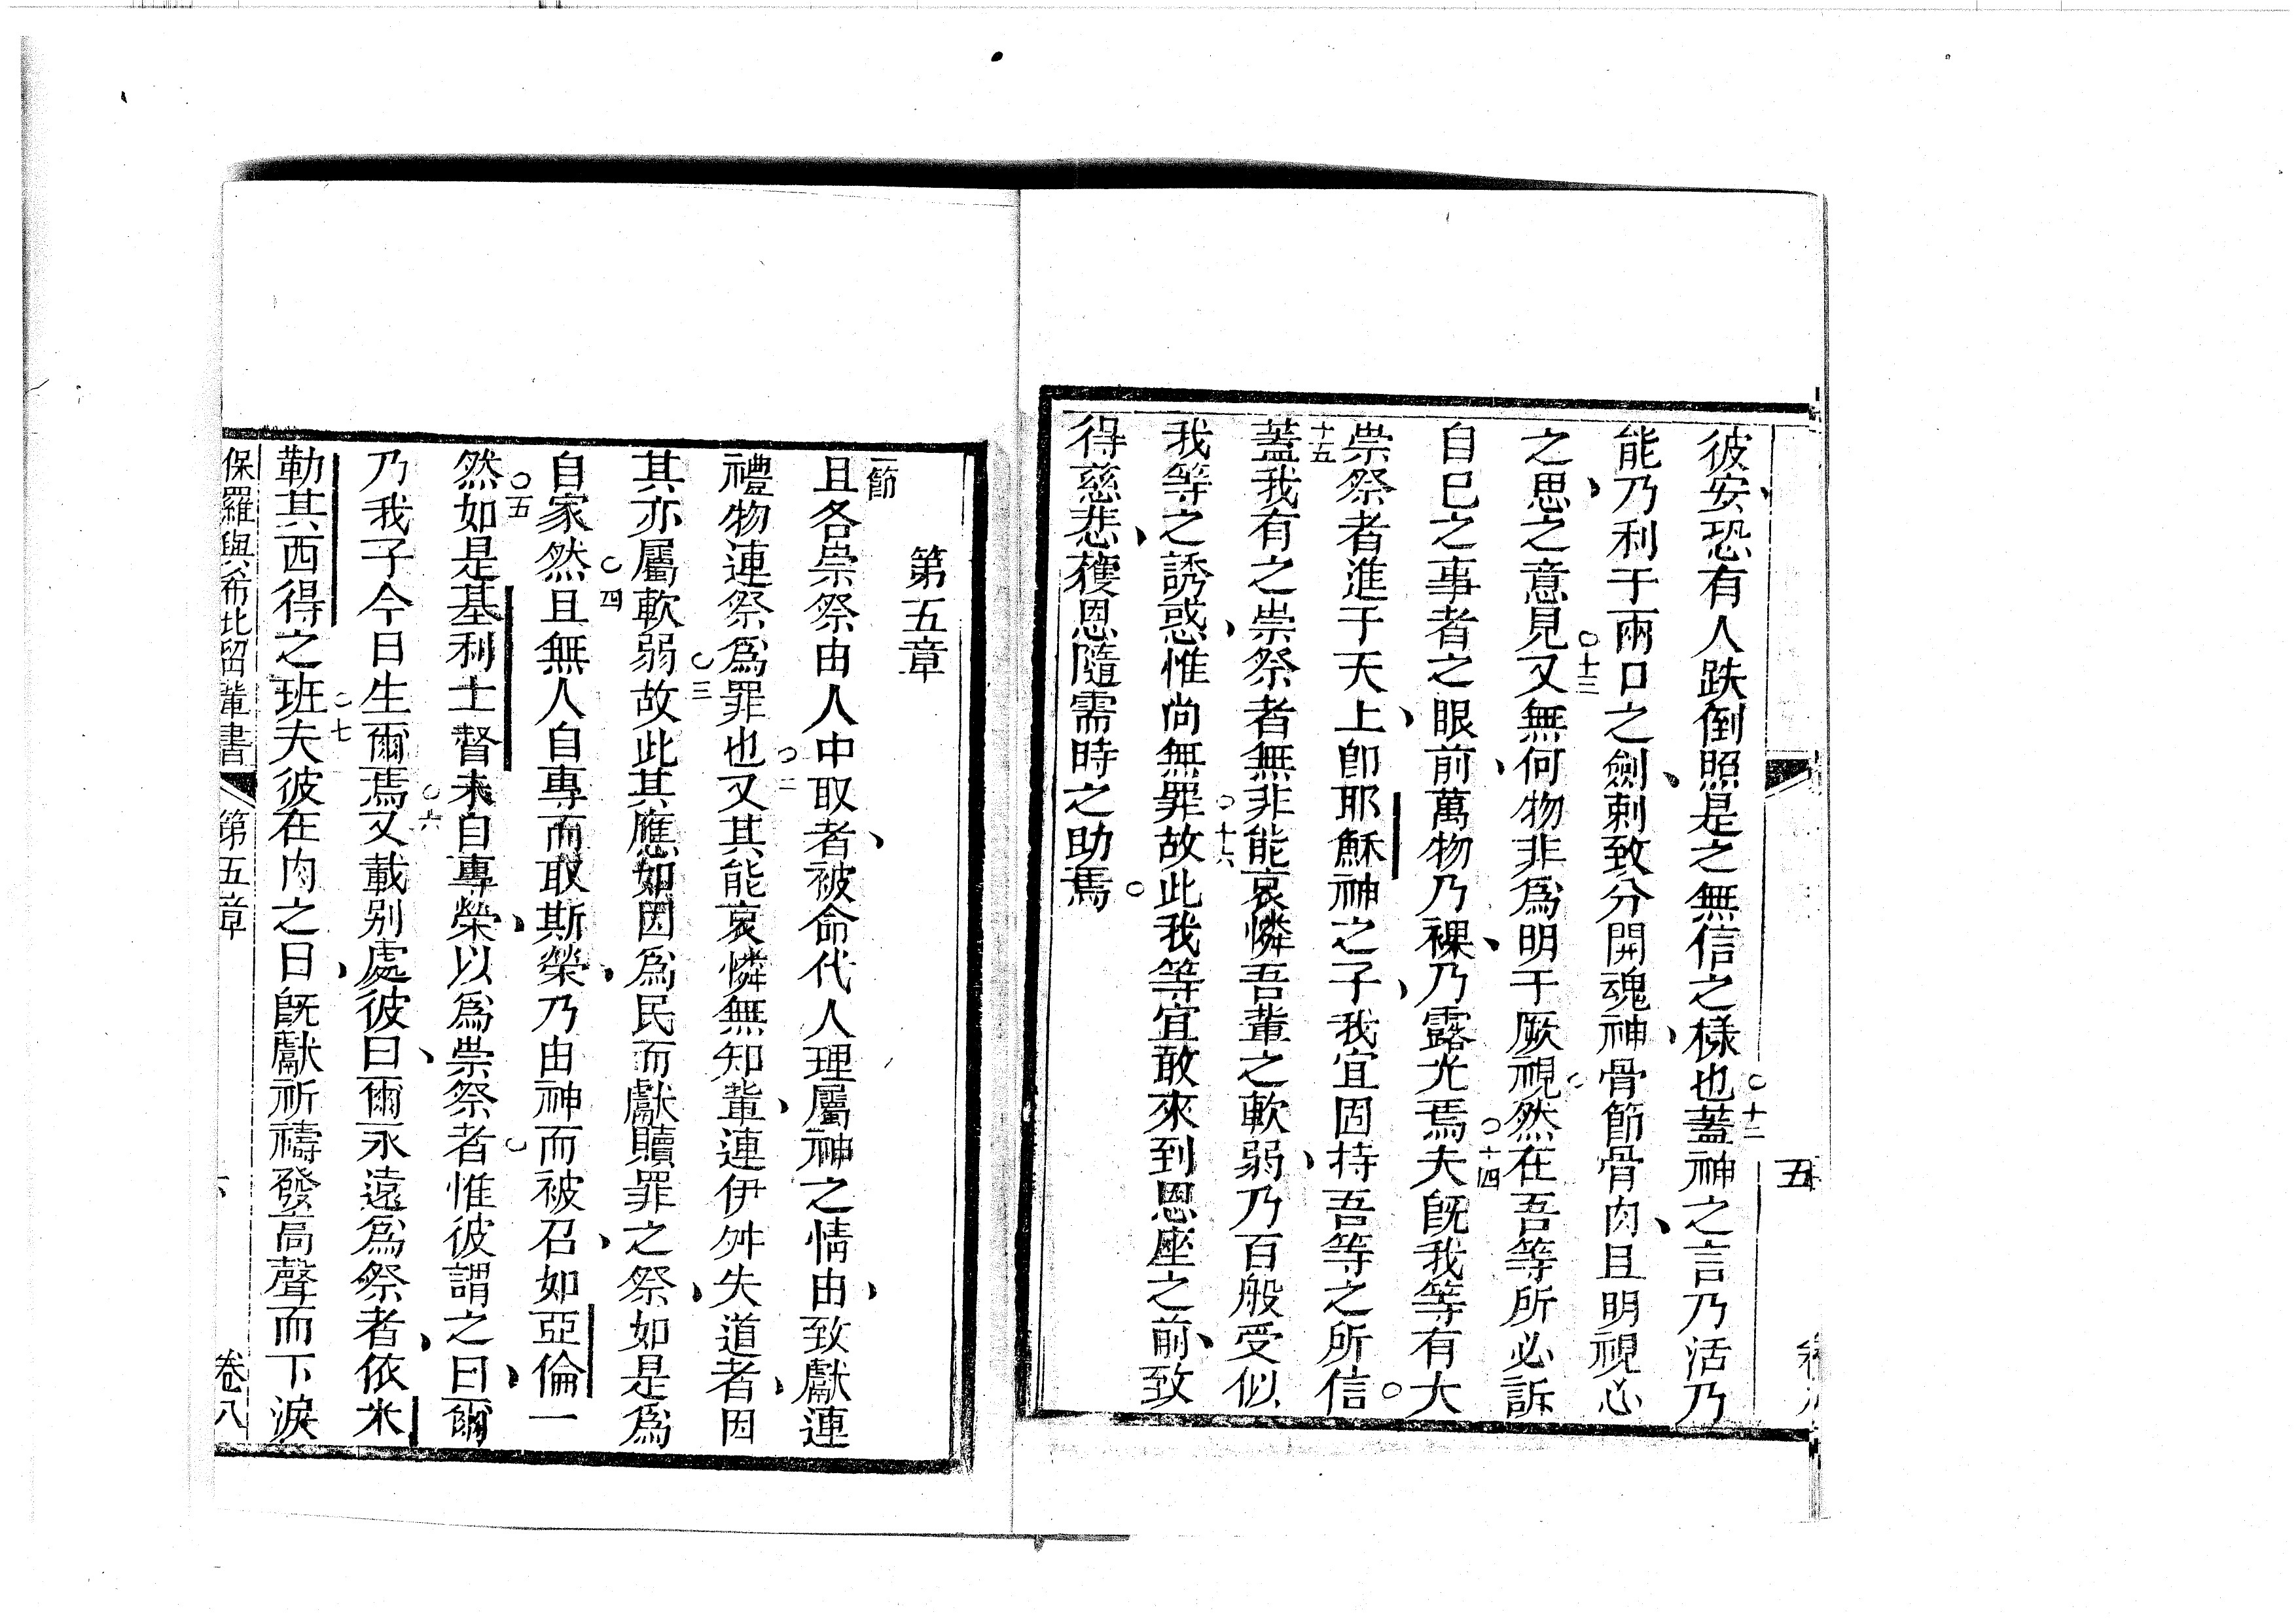 五
彼安、恐有人跌倒照是之無信之樣也。十二蓋神之言乃活乃
能乃利于兩口之劍、刺致分開魂神、骨節骨肉、且明視心
之思、之意見。十三又無何物非爲明于厥視。然在吾等所必訴
自己之事者之眼前、萬物乃裸、乃露光焉。十四夫旣我等有大
祟祭者進于天上、卽耶穌神之子、我宜固持吾等之所信。
十五蓋我有之祟祭者、無非能哀憐吾輩之軟弱、乃百般受似
我等之誘惑、惟尚無罪。十六故此我等宜敢來到恩座之前、致
得慈悲、獲恩隨需時之助焉。
第五章
一節且各崇祭由人中取者、被命代人理屬神之情由、致獻連
禮物連祭爲罪也。二又其能哀憐無知輩、連伊舛失道者、因
其亦屬軟弱。三故此其應如因爲民而獻贖罪之祭、如是爲
自家然。四且無人自專而取斯榮、乃由神而被召、如亞倫一
然。五如是基利士督未自專榮、以爲祟祭者。惟彼謂之曰、爾
乃我子今日生爾焉。六又載别處彼曰、爾永遠爲祭者、依米
勒其西得之班。七夫彼在肉之日、旣獻祈禱發高聲而下淚
保羅與希比留輩書　第五章　卷八